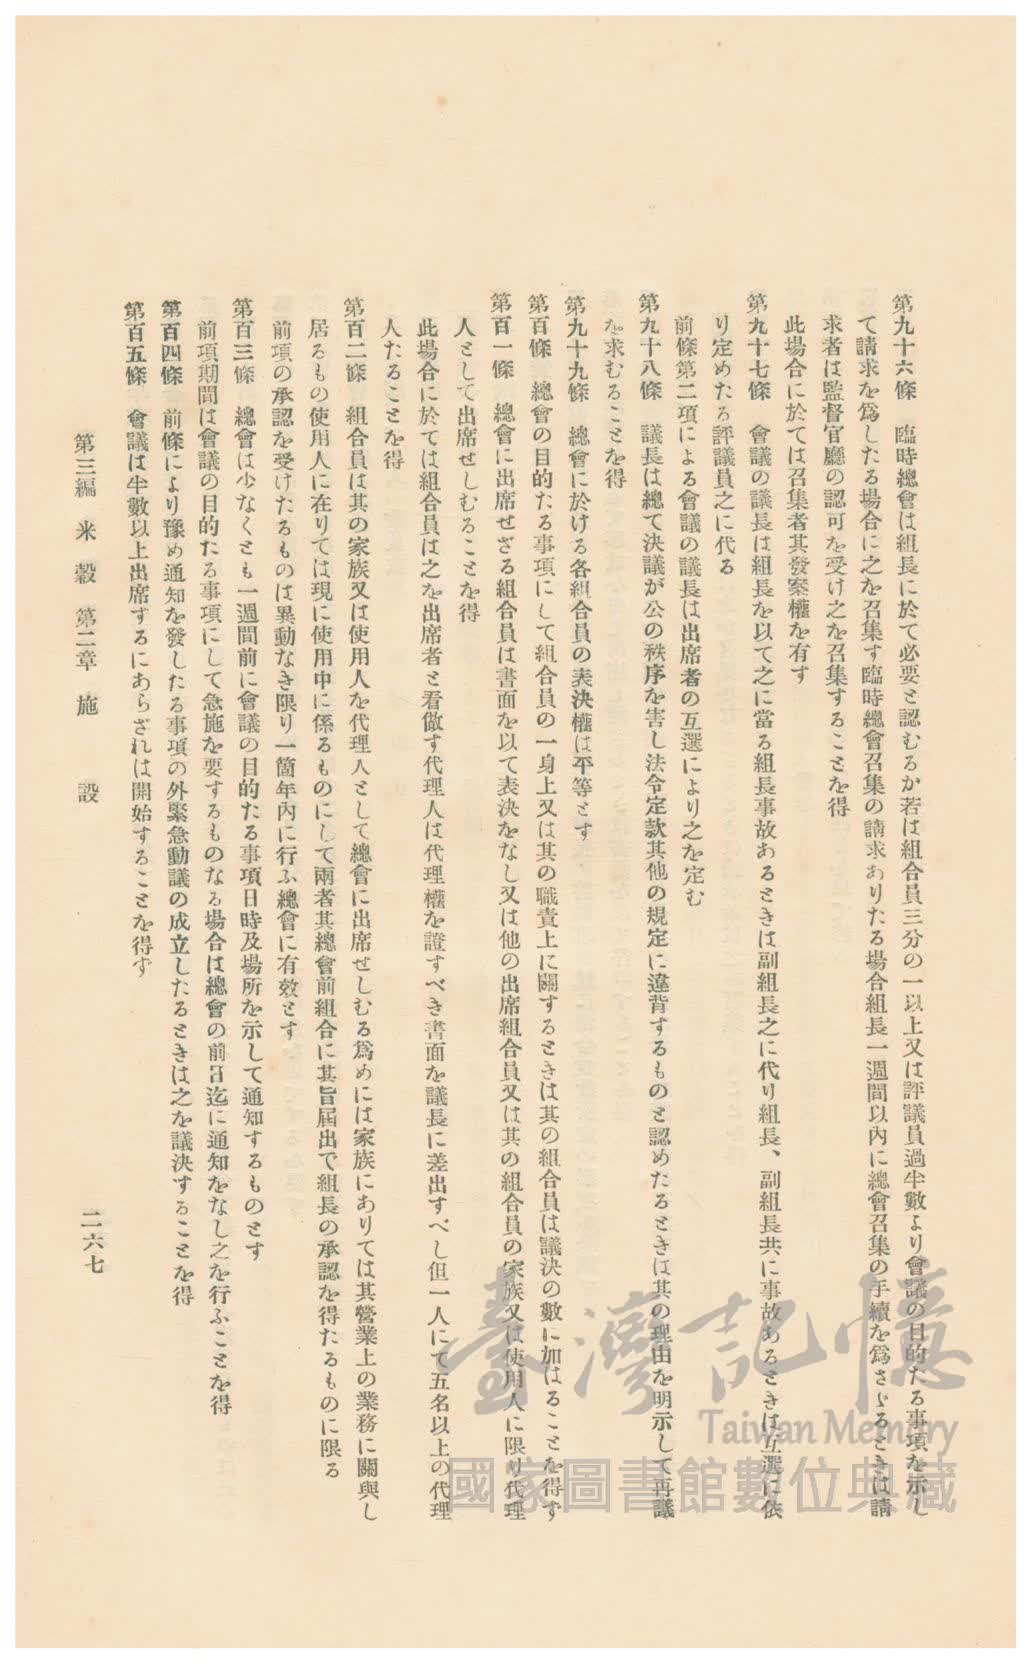 第九十六條　臨時總會は組長に於て必要と認むるか若は組合員三分の一以上又は評議員過半數より會議の目的たる事項を示し
て請求を爲したる場合に之を召集す臨時總會召集の請求ありたる場合組長一週間以內に總會召集の手續を爲さゞるときは請
求者は監督官廳の認可を受け之を召集することを得
此場合に於ては召集者其發案權を有す
第九十七條　會議の議長は組長を以て之に當る組長事故あるときは副組長之に代り組長、副組長共に事故あるときは互選に依
り定めたる評議員之に代る
前條第二項による會議の議長は出席者の互選により之を定む
第九十八條　議長は總て決議が公の秩序を害し法令定款其他の規定に違背するものと認めたるときは其の理由を明示して再議
を求むることを得
第九十九條　總會に於ける各組合員の表決權は平等とす
第百條　總會の目的たる事項にして組合員の一身上又は其の職責上に關するときは其の組合員は議決の數に加はることを得ず
第百一條　總會に出席せざる組合員は書面を以て表決をなし又は他の出席組合員又は其の組合員の家族又は使用人に限り代理
人として出席せしむることを得
此場合に於ては組合員は之を出席者と看做す代理人は代理權を證すべき書面を議長に差出すべし但一人にて五名以上の代理
人たることを得
第百二條　組合員は其の家族又は使用人を代理人として總會に出席せしむる爲めには家族にありては其營業上の業務に關與し
居るもの使用人に在りては現に使用中に係るものにして兩者其總會前組合に其旨屆出で組長の承認を得たるものに限る
前項の承認を受けたるものは異動なき限り一箇年內に行ふ總會に有效とす
第百三條　總會は少なくとも一週間前に會議の目的たる事項日時及場所を示して通知するものとす
前項期間は會議の目的たる事項にして急施を要するものなる場合は總會の前日迄に通知をなし之を行ふことを得
第百四條　前條により豫め通知を發したる事項の外緊急動議の成立したるときは之を議決することを得
第百五條　會議は半數以上出席するにあらざれは開始することを得ず
第三編　米　穀　第二章　施　設
二六七
臺灣記憶
Taiwan Memory
國家圖書館數位典藏